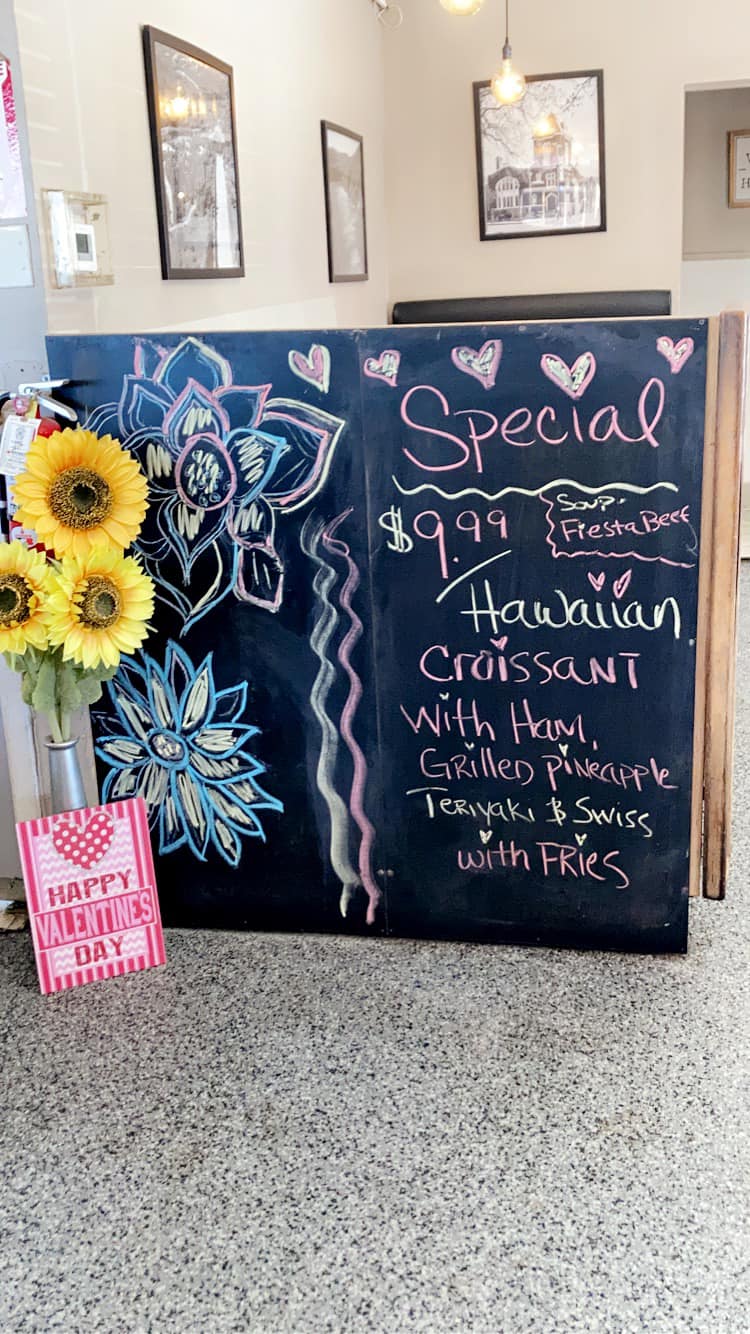 Special
$9.99
Soup-
Fiesta Beef
Hawaiian
Croissant
With Ham,
Grilled Pineapple
Teriyaki & Swiss
with Fries
HAPPY
VALENTINES
DAY